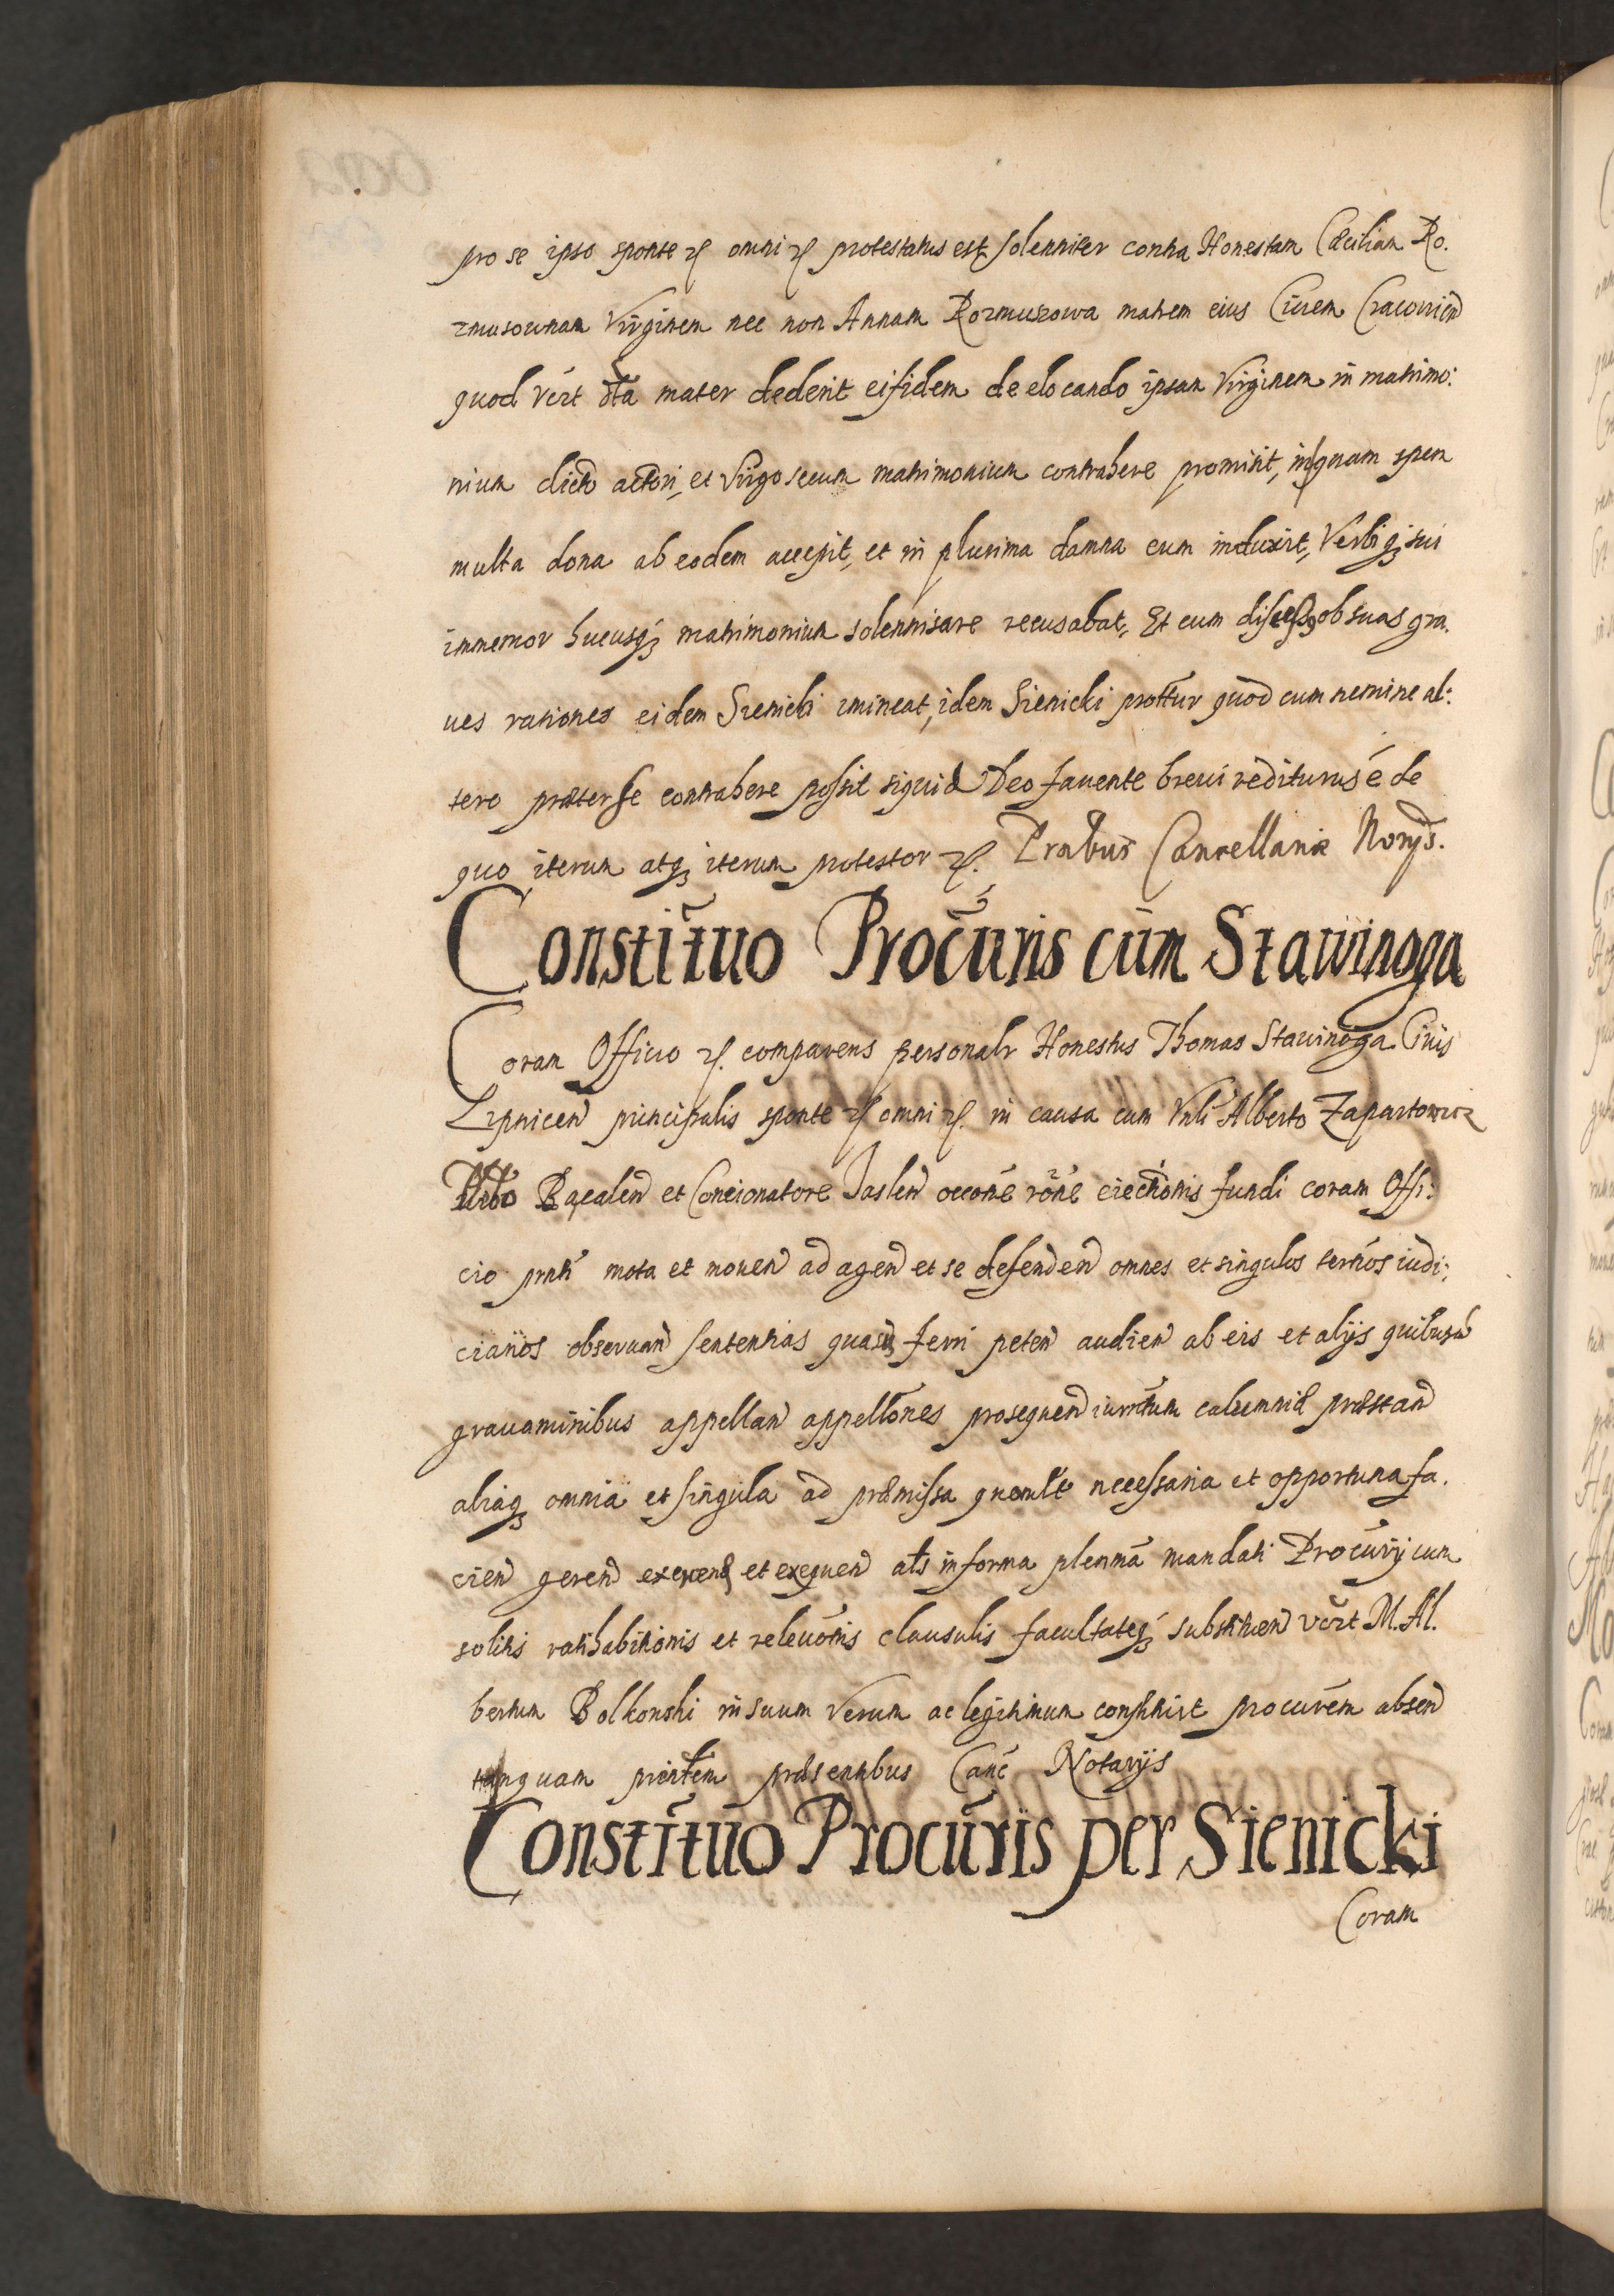 pro se ipso sponte etc omni etc protestatus est solenniter contra Honestam Cæciliam Ro.
zmusownam Virginem nec non Annam Rozmuszowa matrem eius Ciuem Cracouień
quod vért dta mater dederit ei fidem de elocando ipsam Virginem in matrimo:
nium dicto actori, et Virgo secum matrimonium contrahere promisit, in quam spem
multa dona ab eodem accepit, et in plurima damna eum induxit, Verbiq sui
immemor hucusq matrimonium solennisare recusabat, Et cum discessus ob suas gra.
ues rationes eidem Sienicki imineat, idem Sienicki prottur quod cum nemine al:
tero præter se contrahere possit siquid Deo fauente breui rediturus é de
quo iterum atq iterum protestor etc. Prntbus Cancellariæ Norijs.
Constitūo Procūris cūm Stawinoga
Coram Officio etc. comparens personalr Honestus Thomas Stawinoga Ciuis
Lipnicen̄ principalis sponte etc omni etc. in causa cum Vnli Alberto Zapartowicz
Bacalen̄ et Concionatore Jaslen̄ occone rone eiectionis fundi coram Offi:
cio prnti mota et mouen̄ ad agen̄ et se defenden̄ omnes et singulos ternos iudi:
ciarios obseruan̄ sententias quasuis ferri peten̄ audien̄ ab eis et alijs quibusuis
grauaminibus appellan̄ appellones prosequen̄ iurntum calumniæ præstan̄
aliaq omnia et singula ad præmissa necessaria et opportuna fa.
cien̄ geren̄ exercen̄ et exequen̄ als in forma plenria mandati Procurij cum
solitis ratihabitionis et releuonis clausulis facultateq substituen̄ vért M. Al.
bertum Bolkonski in suum verum ac legitimum constituit procurem absen̄
tanquam prientem præsentibus Canc Notarijs
Constitūo Procūriis per Sienicki
Coram